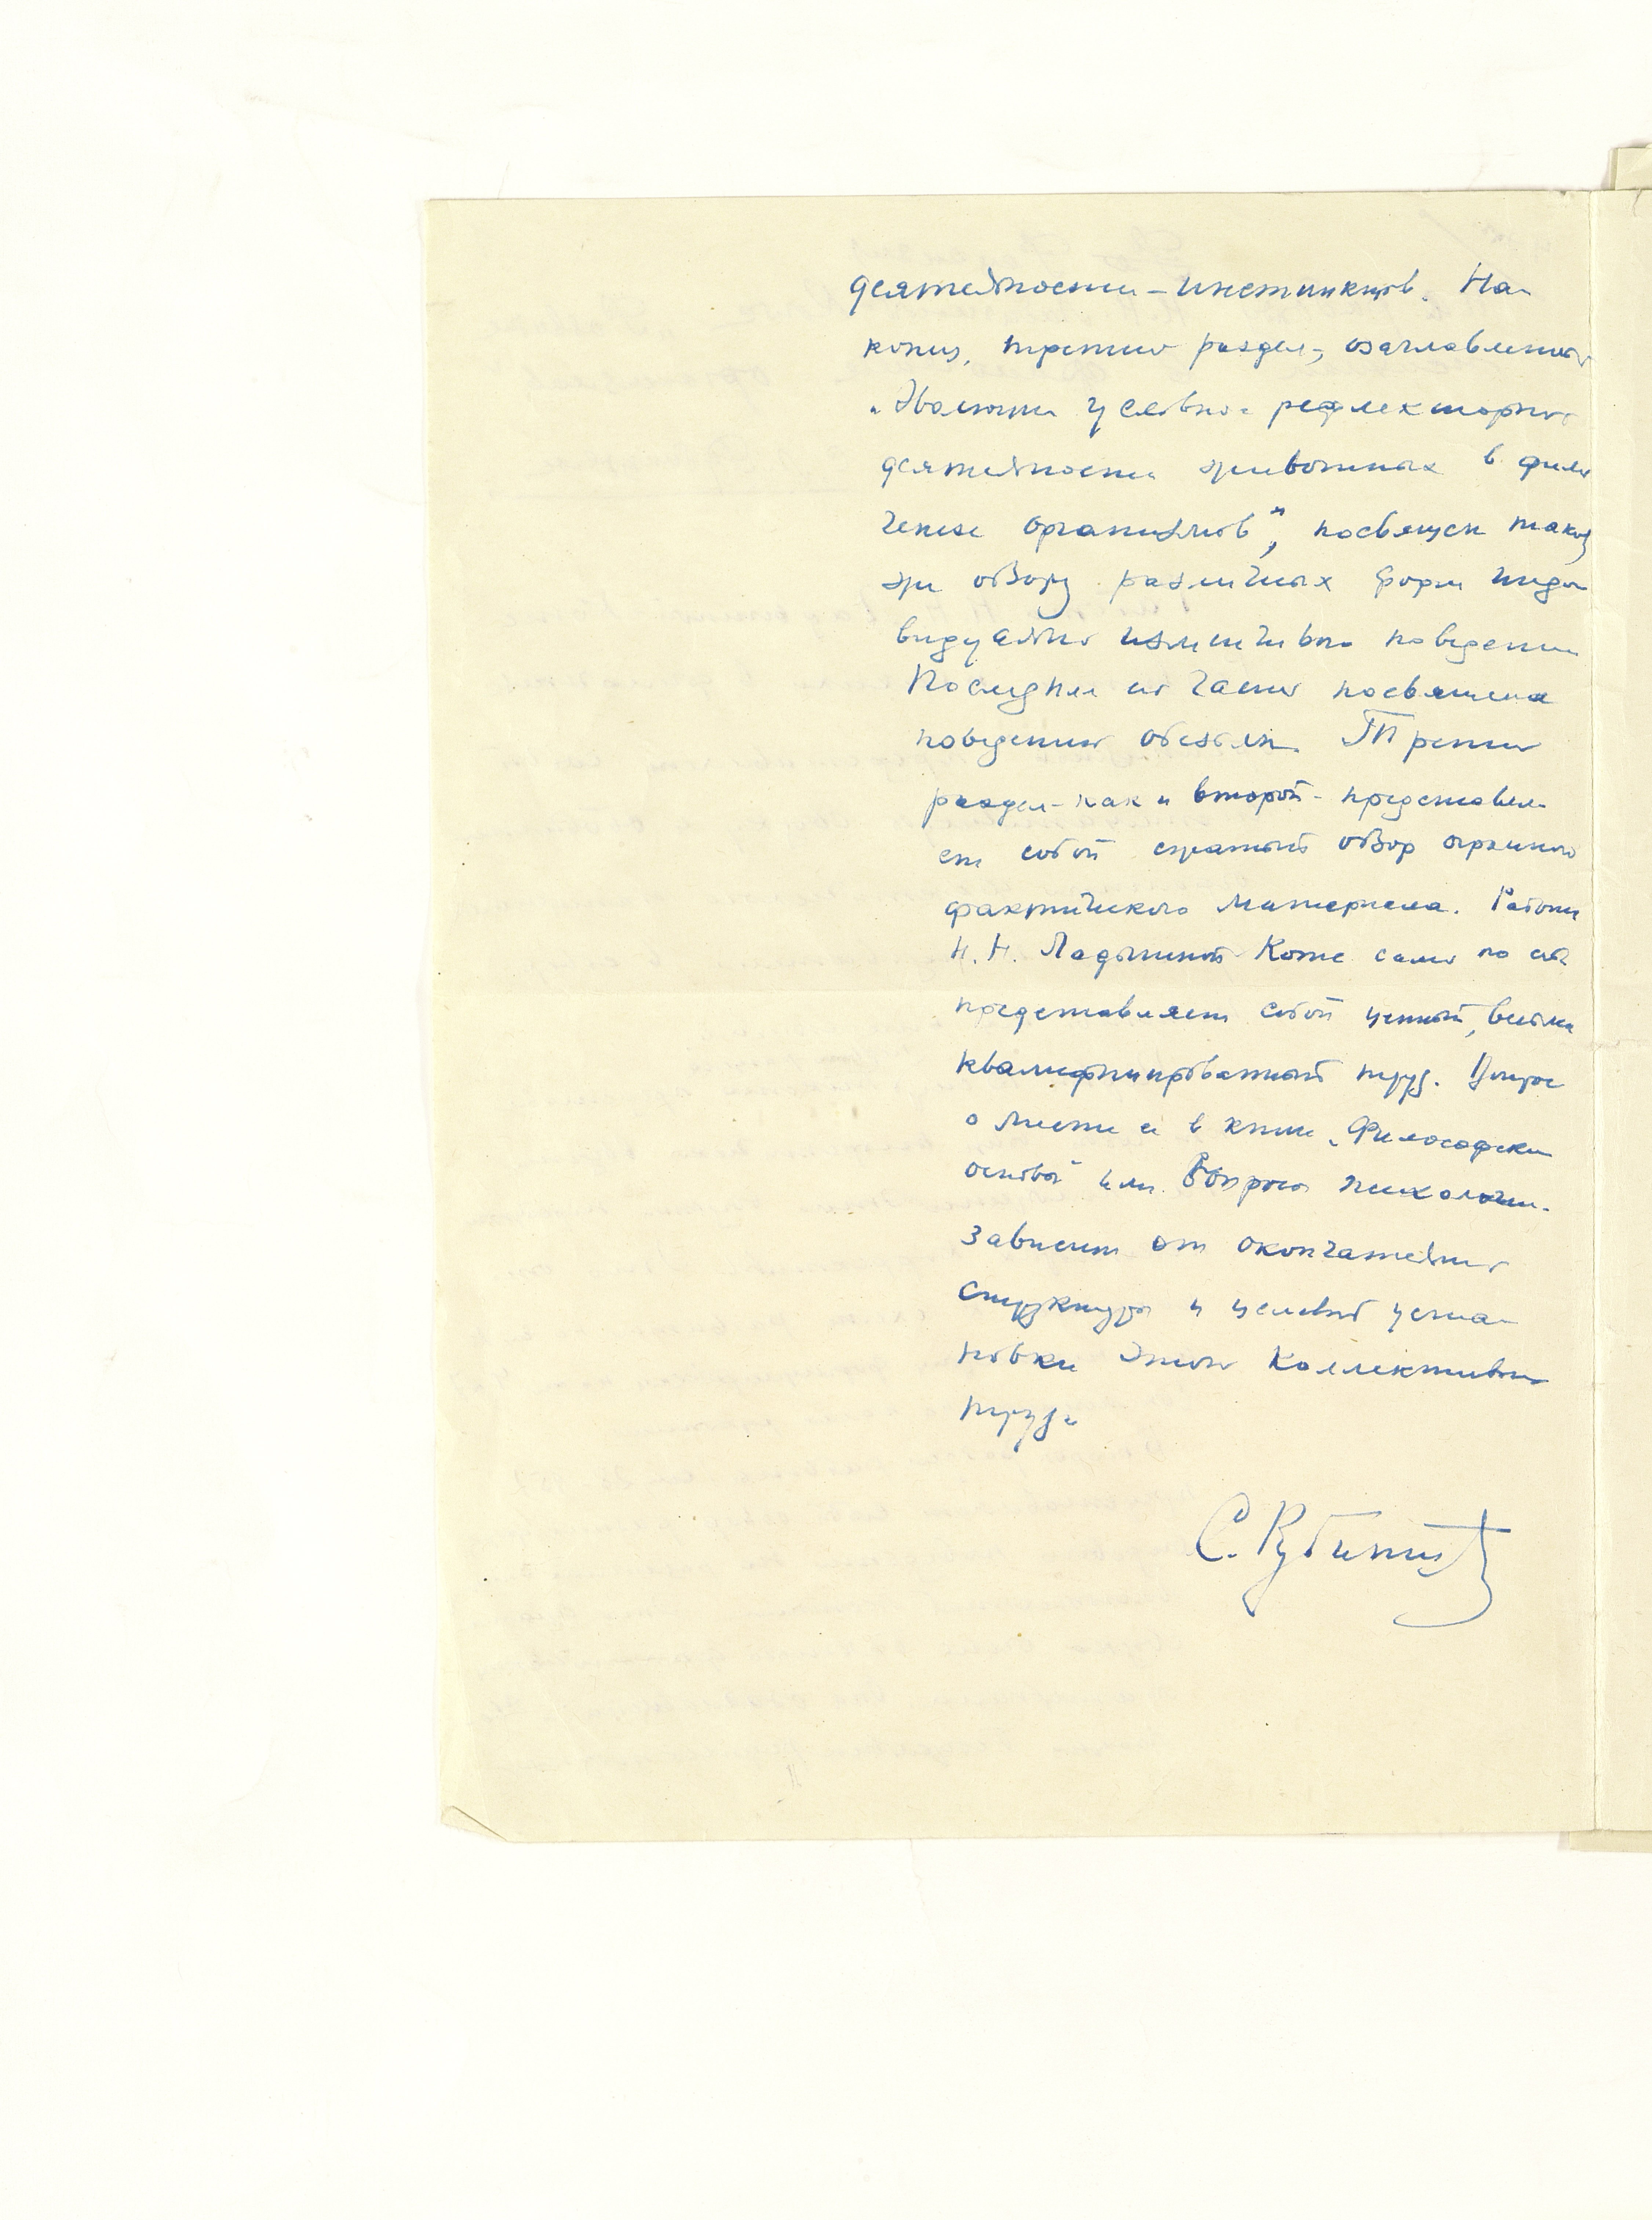 деятельности – инстинктов. На-
конец, третий раздел, озаглавленный
„Эволюция условно-рефлекторной
деятельности животных в фило
генезе организмов“, посвящен также
же обзору различных форм инди
видуально изменчивого поведения
Последняя его часть посвящена
поведению обезьян. Третий
раздел – как и второй – представля
ет собой сжатый обзор огромного
фактического материала. Работа
Н. Н. Ладыгиной Котс сама по себе
представляет собой ценный, весьма
квалифицированный труд. Вопрос
о месте ее в книге „Философские
основы“ или Вопросы психологии.
зависит от окончательной
структуры и целевой уста-
новки этого коллективного
труда
С. Рубинштейн